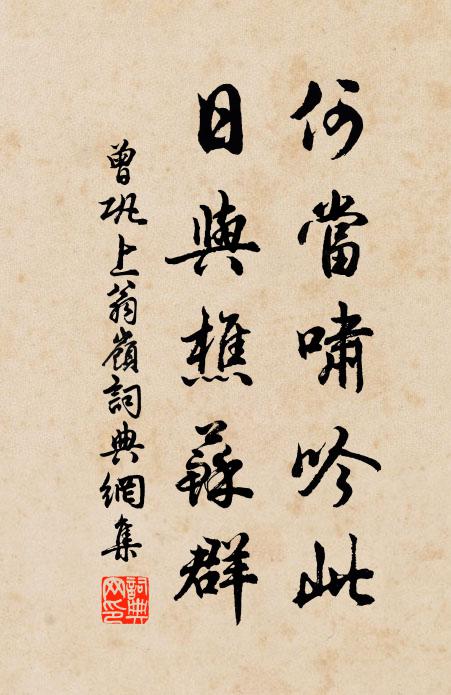 何當嘯吟此
日與樵蘇群
曾巩上翁嶺詞典網集
詞典網印